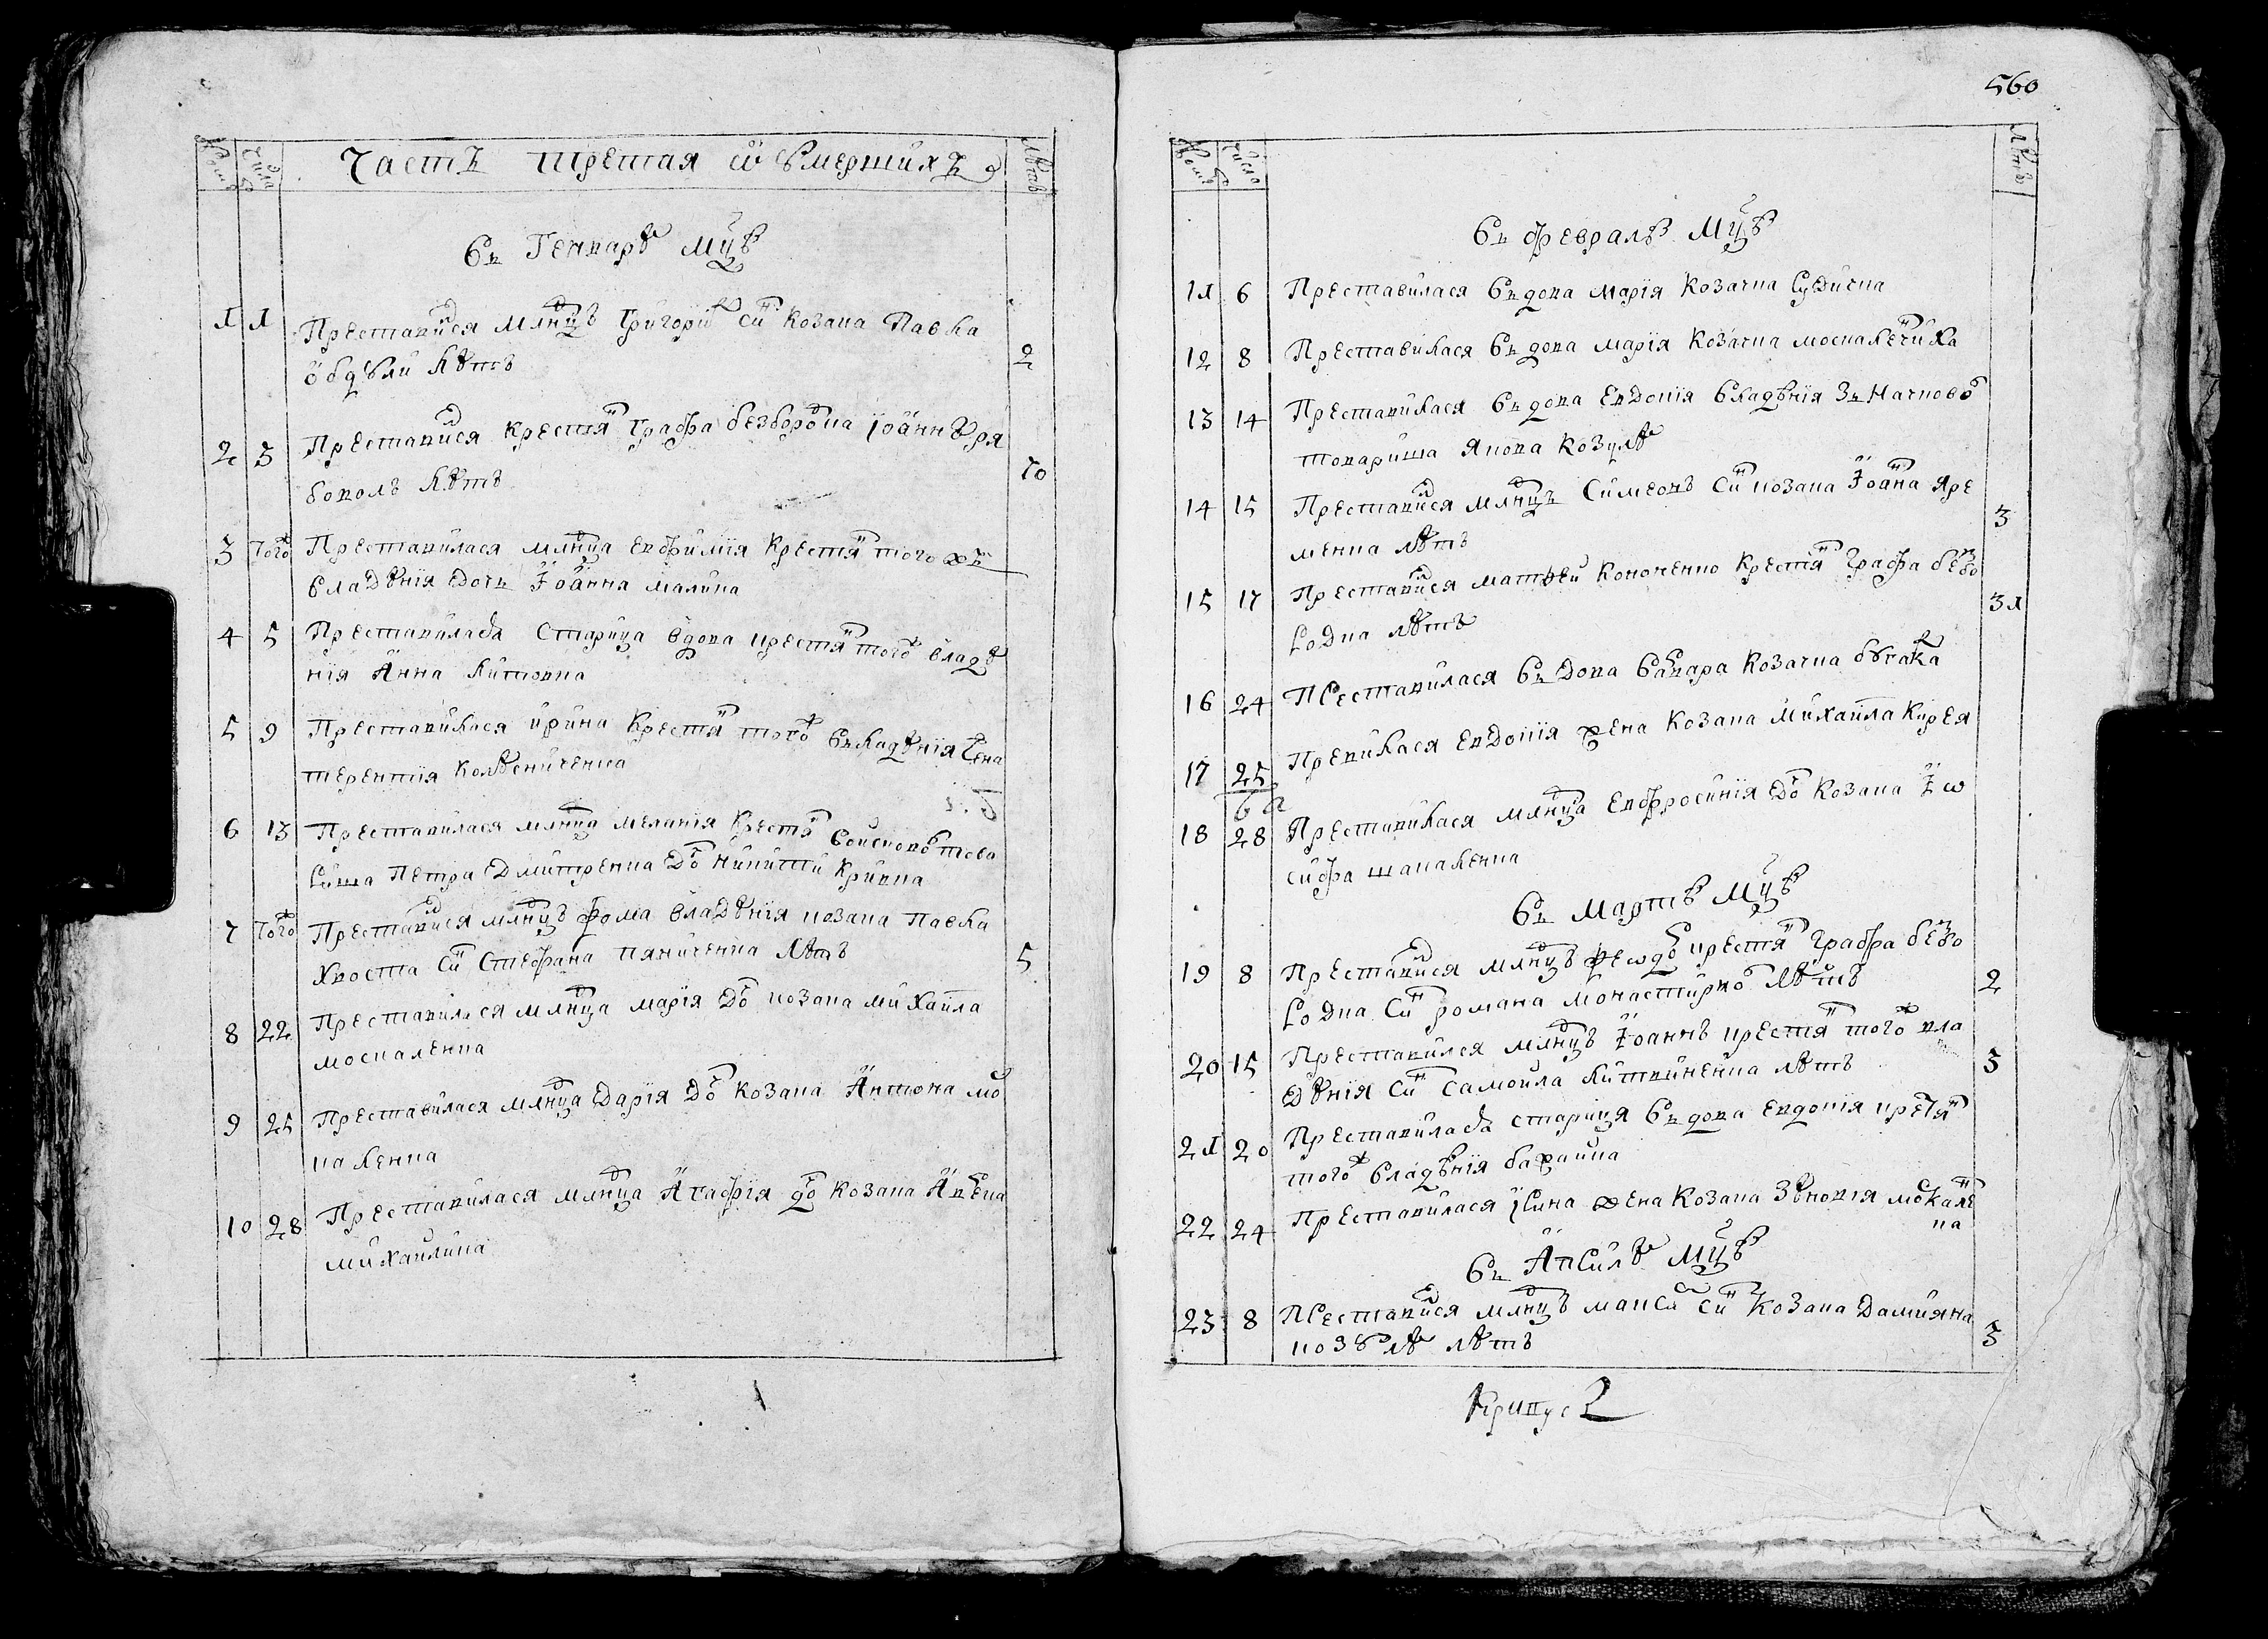 560
Часть третая ѿ ѹмершихъ
Числа
Лѣтъ
въ Генварѣ мцѣ
1 1 Преставися млнцъ Григорій сн козака Павла
Обдѹли лѣтъ 2
2 3 Преставися крестя графа безбородка Іоаннъ
лѣтъ 70
3 Тогож Преставилася млнца Евфимія крестя тогожъ
владѣнія дочь Іоанна малика
4 5 Преставилася Старица вдова крестя тогож владѣ
нія Анна Литовка
5 9 Преставилася ирина крестя тогож владѣнія жена
терентія Колѣсниченка
6 13 Преставилася млнца меланія крестя войсково това
риша Петра Дмитренка до Никити Кривка
7 Тогож Преставися млнцъ Фома владѣнія козака Павла
Хвоста сн Стефана паниченка лѣтъ 5
8 22 Преставилася млнца марія до козака михаила
москаленка
9 25 Преставилася млнца Дарія до козака Антона мо
каленка
10 28 Преставилася млнца Агафія до козака
михайлика
Число
Лѣтъ
въ февралѣ мцѣ
11 6 Преставилася вдова марія козачка Судичка
12 8 Преставилася вдова марія козачка москалечиха
13 14 Преставилася вдова Евдокія владѣнія значково
товариша Якова козулѣ
14 15 Преставися млнцъ Симеонъ сн козака Іоана Яре
менка лѣтъ 3
15 17 Преставися матфей Кононенко крестя графа безбо
родка лѣтъ 31
16 24 Преставилася вдова варвара козачка бѹгака
17 25 Превилася Евдокія жена козака михаила Кирея
18 28 Преставилася млнца Евфросинія до козака Іѡ
сифа шапаленка
въ мартѣ мцѣ
19 8 Преставися млнцъ Феѡдо крестя графа безбо
родка сн романа монастирко лѣтъ 2
20 15 Преставился млнцъ Іоаннъ крестя тогож вла
дѣнія сн самойла литвиненка лѣтъ 3
21 20 Преставилася стариця вдова Евдокія крестя
тогож владѣнія
22 24 Преставилася ірина жена козака Зѣновія москале
ка
въ Априлѣ мцѣ
23 8 Преставися млнцъ сн козака Дамияна
козѹлѣ лѣтъ 3